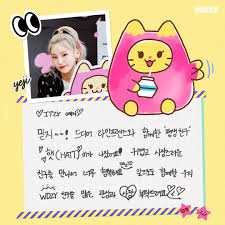 yeji
♡ITZY 예지♡
믿지~~! 드디어 라인프렌즈와 함께한 평생친구
햇(HATT)이가 나왔어요! 귀엽고 사랑스러운
친구를 만나서 너무 행복해요 앞으로 함께할 우리
WDZY 친구들 많은 관심과 사랑 부탁드려요♡